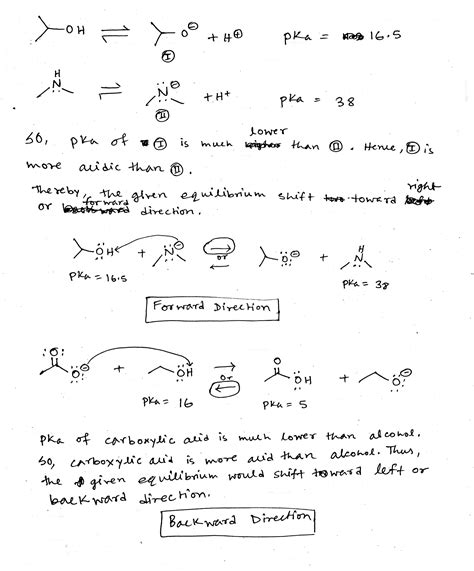 OH ⇌ O⊖ + H⊕ pKa = 16.5
I
H
N ⇌ N⊖ + H+ pKa = 38
II
So, pKa of I is much lower than II. Hence, I is
more acidic than II.
Thereby, the given equilibrium shift toward right
or forward direction.
ÖH + N⊖ ⇌ or O⊖ + H N
pKa = 16.5 pKa = 38
Forward Direction
O O⊖ + OH ⇌ or O OH + O⊖
pKa = 16 pKa = 5
pKa of carboxylic acid is much lower than alcohol.
So, carboxylic acid is more acid than alcohol. Thus,
the given equilibrium would shift toward left or
backward direction.
Backward Direction